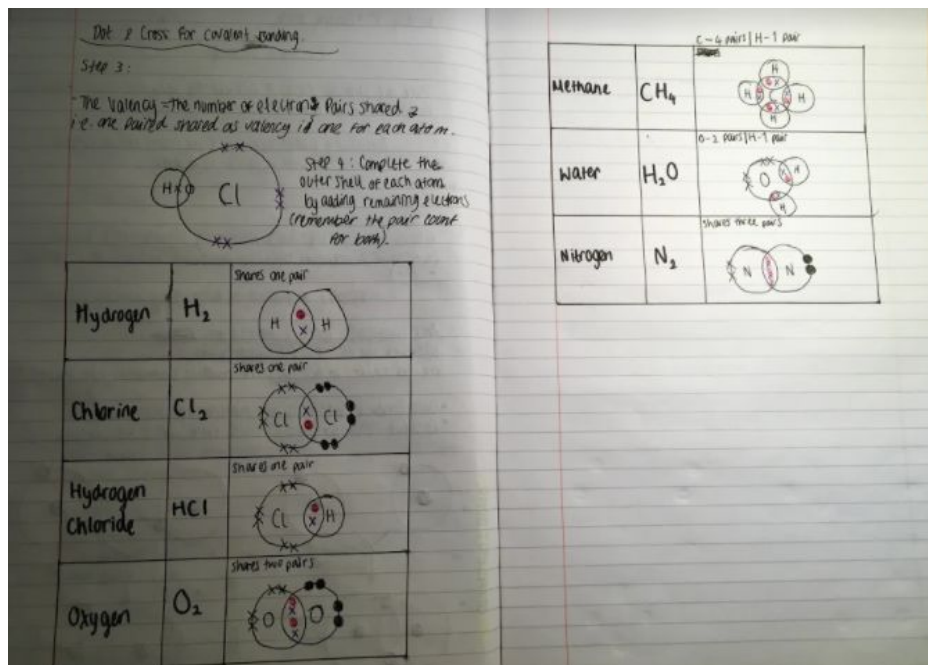 Dot & Cross For Covalent Bonding.
Step 3:
The Valency = The number of electrons Pairs shared
i.e. one paired shared as valency is one for each atom.
H
Cl
Step 4: Complete the
outer shell of each atom
by adding remaining electrons
(remember the pair count
for both).
Hydrogen
H2
shares one pair
H H
Chlorine
Cl2
shares one pair
Cl Cl
Hydrogen
Chloride
HCl
shares one pair
Cl H
Oxygen
O2
shares two pairs
O O
C-4 pairs | H-1 pair
Methane
CH4
H
H C H
H
O-2 pairs | H-1 pair
Water
H2O
O H
H
shares three pairs
Nitrogen
N2
N N